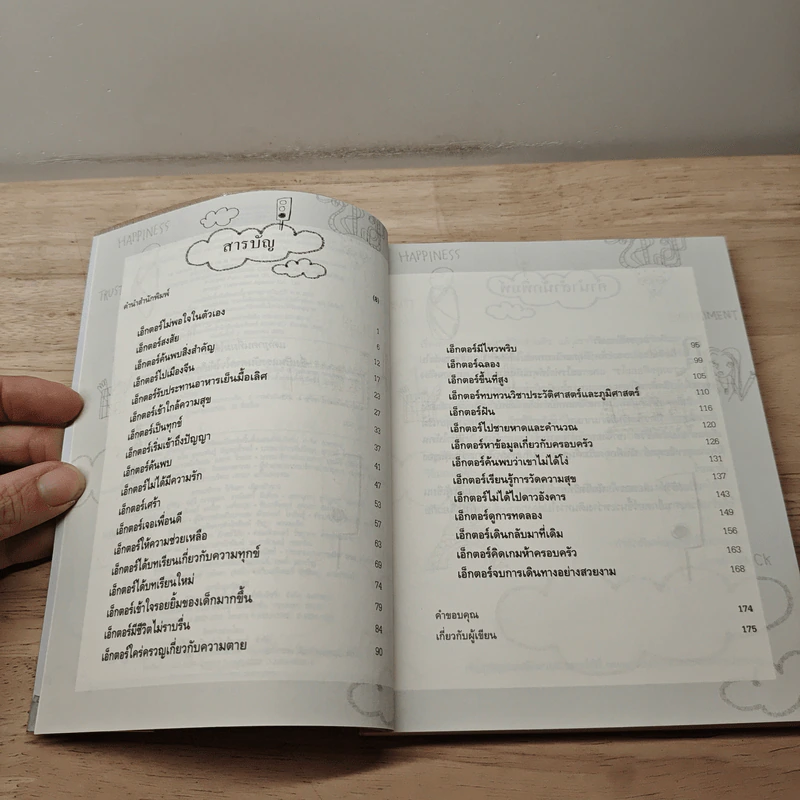 HAPPINESS
สารบัญ
TRUST
คำนำสำนักพิมพ์ (8)
เอ็กตอร์ไม่พอใจในตัวเอง 1
เอ็กตอร์สงสัย 6
เอ็กตอร์ค้นพบสิ่งสำคัญ 12
เอ็กตอร์ไปเมืองจีน 17
เอ็กตอร์รับประทานอาหารเย็นมื้อเลิศ 23
เอ็กตอร์เข้าใกล้ความสุข 27
เอ็กตอร์เป็นทุกข์ 33
เอ็กตอร์เริ่มเข้าถึงปัญญา 37
เอ็กตอร์ค้นพบ 41
เอ็กตอร์ไม่ได้มีความรัก 47
เอ็กตอร์เศร้า 53
เอ็กตอร์เจอเพื่อนดี 57
เอ็กตอร์ให้ความช่วยเหลือ 63
เอ็กตอร์ได้บทเรียนเกี่ยวกับความทุกข์ 69
เอ็กตอร์ได้บทเรียนใหม่ 74
เอ็กตอร์เข้าใจรอยยิ้มของเด็กมากขึ้น 79
เอ็กตอร์มีชีวิตไม่ราบรื่น 84
เอ็กตอร์ใคร่ครวญเกี่ยวกับความตาย 90
HAPPINESS
เอ็กตอร์มีไหวพริบ 95
เอ็กตอร์ฉลอง 99
เอ็กตอร์ขึ้นที่สูง 105
เอ็กตอร์ทบทวนวิชาประวัติศาสตร์และภูมิศาสตร์ 110
เอ็กตอร์ฝัน 116
เอ็กตอร์ไปชายหาดและคำนวณ 120
เอ็กตอร์หาข้อมูลเกี่ยวกับครอบครัว 126
เอ็กตอร์ค้นพบว่าเขาไม่ได้โง่ 131
เอ็กตอร์เรียนรู้การวัดความสุข 137
เอ็กตอร์ไม่ได้ไปดาวอังคาร 143
เอ็กตอร์ดูการทดลอง 149
เอ็กตอร์เดินกลับมาที่เดิม 156
เอ็กตอร์คิดเกมห้าครอบครัว 163
เอ็กตอร์จบการเดินทางอย่างสวยงาม 168
คำขอบคุณ 174
เกี่ยวกับผู้เขียน 175